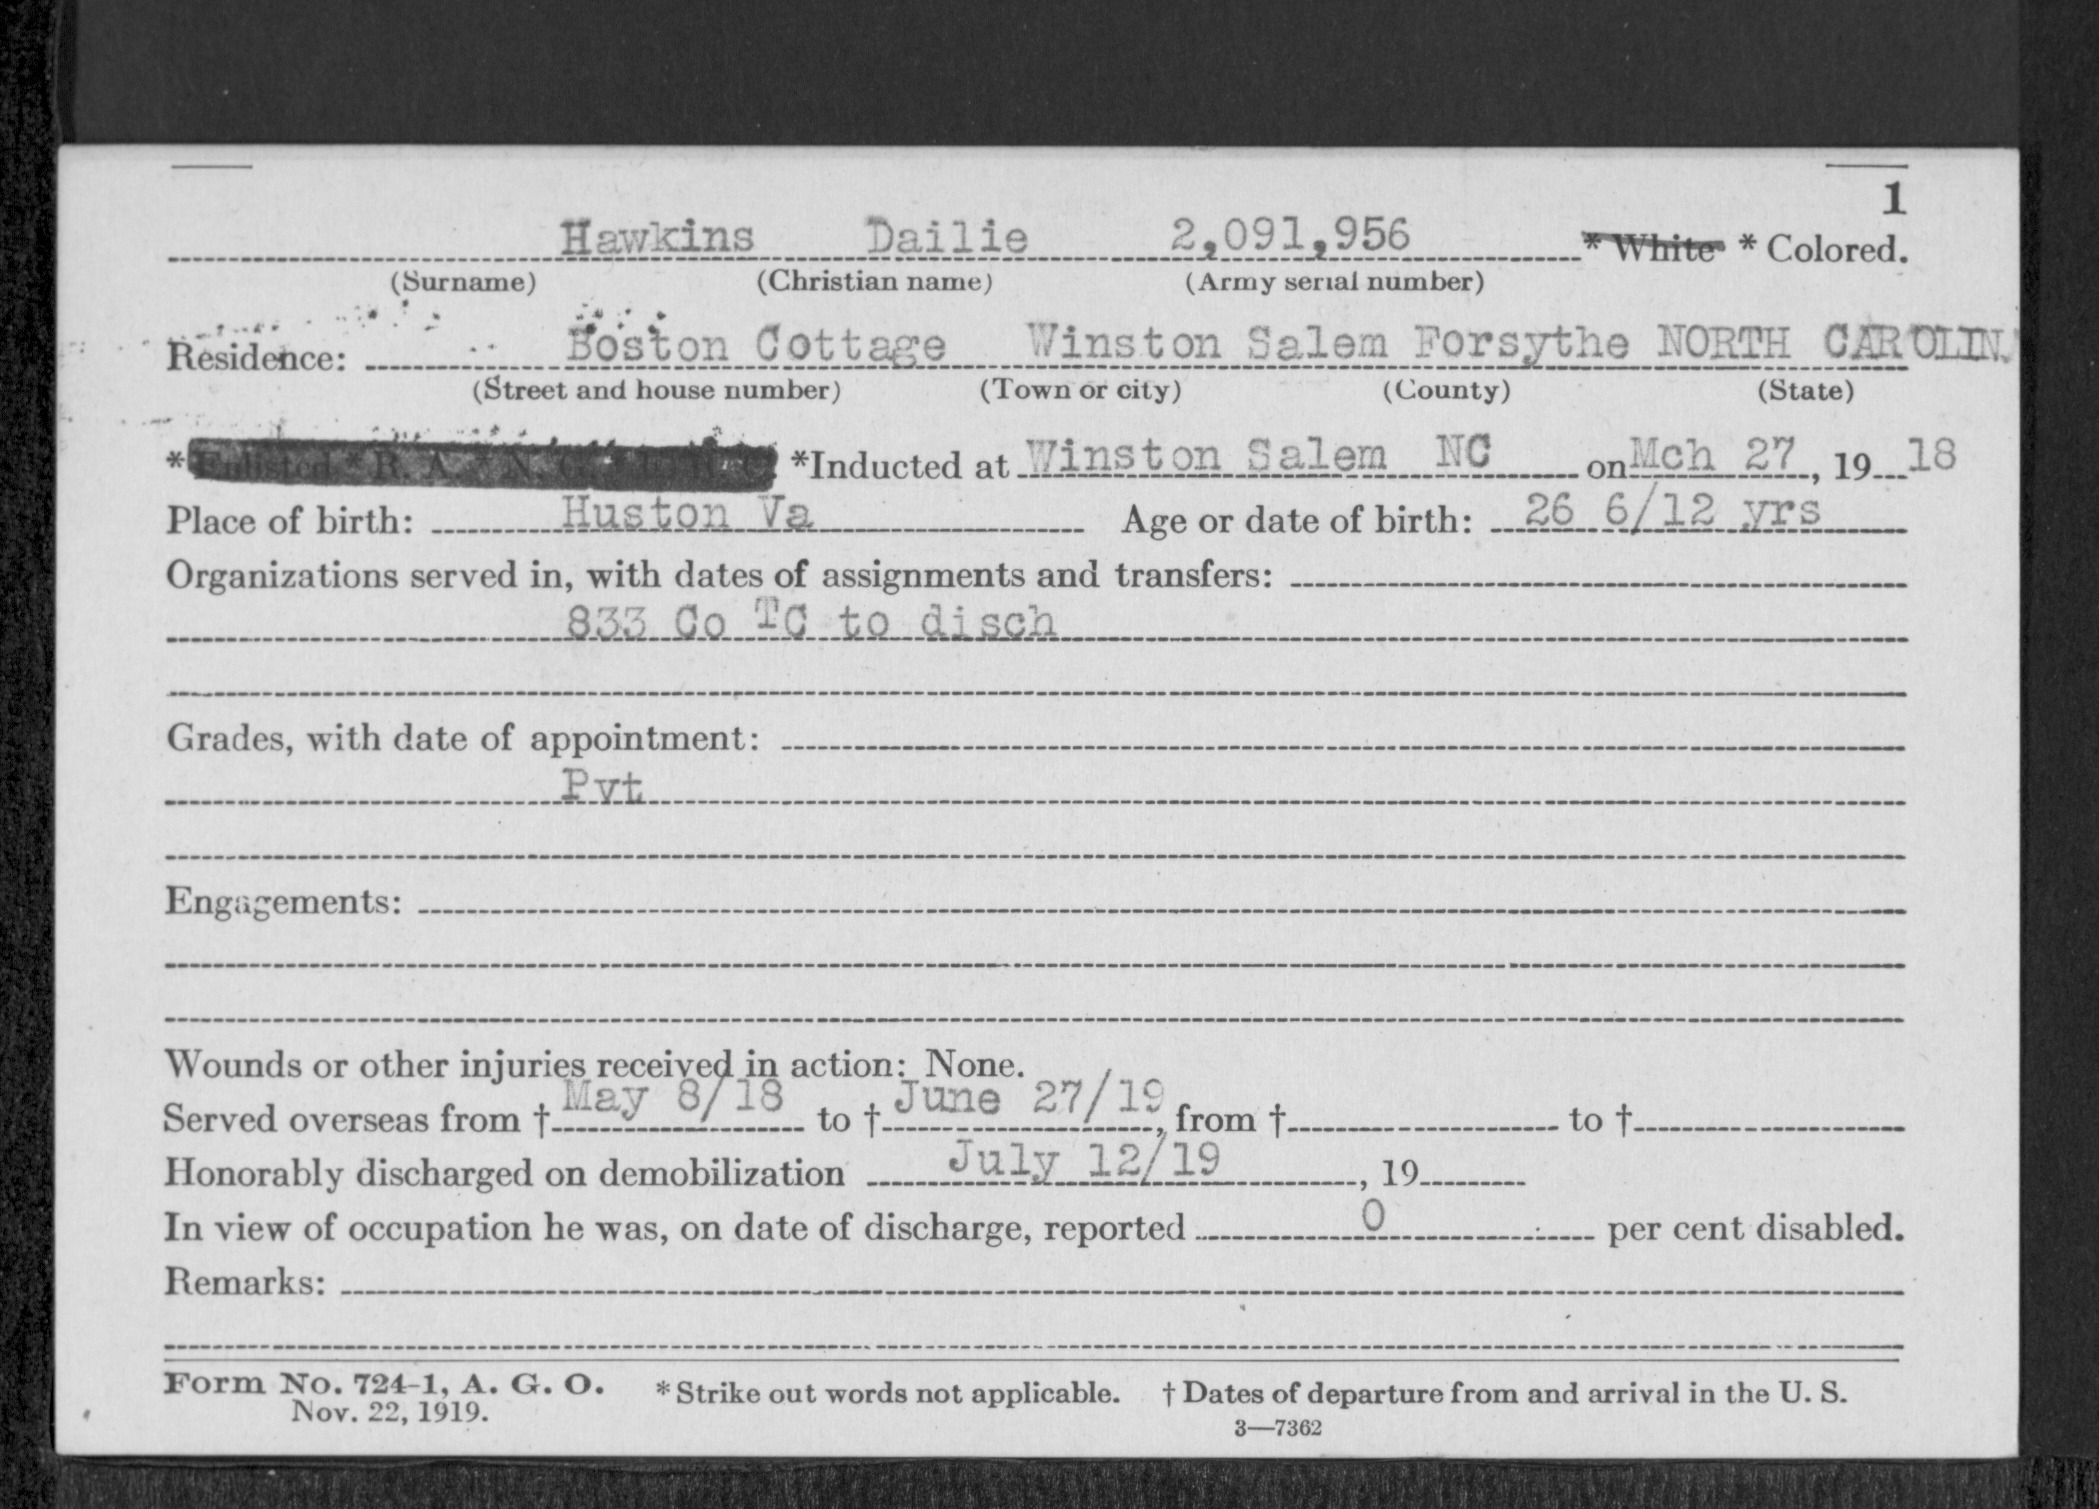 1
Hawkins Dailie 2,091,956 * White * Colored.
(Surname) (Christian name) (Army serial number)
Residence: Boston Cottage Winston Salem Forsythe NORTH CAROLIN
(Street and house number) (Town or city) (County) (State)
* Enlisted * R. A. * N. G. * E. R. C. *Inducted at Winston Salem NC on Mch 27, 19 18
Place of birth: Huston Va Age or date of birth: 26 6/12 yrs
Organizations served in, with dates of assignments and transfers:
833 Co TC to disch
Grades, with date of appointment:
Pvt
Engagements:
Wounds or other injuries received in action: None.
Served overseas from † May 8/18 to † June 27/19, from † to †
Honorably discharged on demobilization July 12/19, 19
In view of occupation he was, on date of discharge, reported 0 per cent disabled.
Remarks:
Form No. 724-1, A. G. O. * Strike out words not applicable. † Dates of departure from and arrival in the U. S.
Nov. 22, 1919.
3—7362